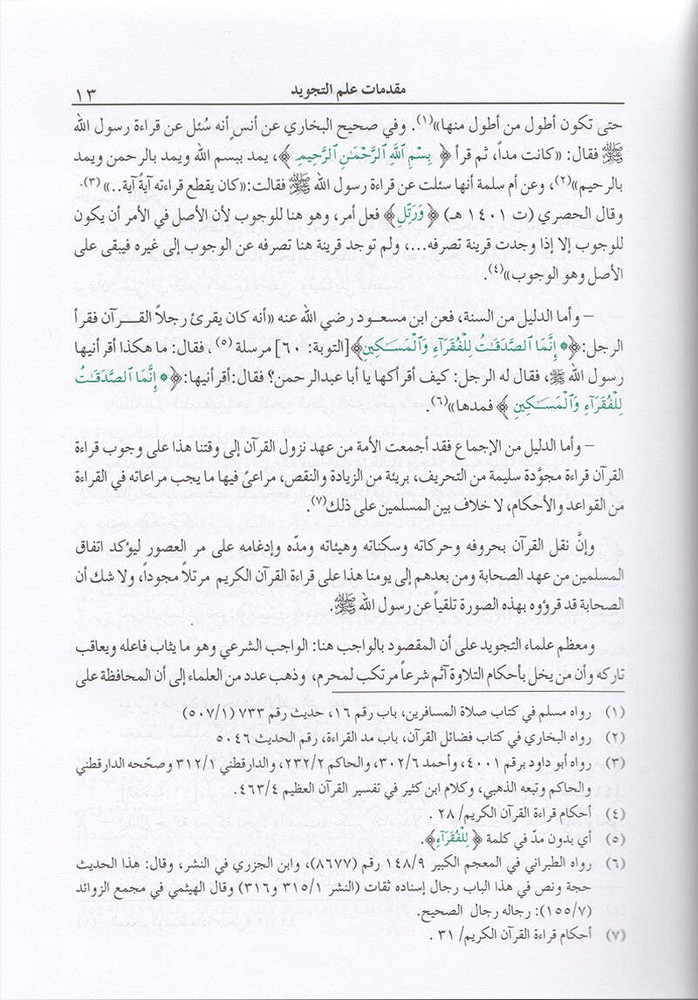 مقدمات علم التجويد ١٣
حتى تكون أطول من أطول منها»(١). وفي صحيح البخاري عن أنس أنه سُئل عن قراءة رسول الله
ﷺ فقال: «كانت مداً، ثم قرأ ﴿ بِسْمِ ٱللَّهِ ٱلرَّحْمَٰنِ ٱلرَّحِيمِ ﴾، يمد ببسم الله ويمد بالرحمن ويمد
بالرحيم»(٢)، وعن أم سلمة أنها سئلت عن قراءة رسول الله ﷺ فقالت:«كان يقطع قراءته آيةً آية..» (٣).
وقال الحصري (ت ١٤٠١ هـ) ﴿ وَرَتِّلِ ﴾ فعل أمر، وهو هنا للوجوب لأن الأصل في الأمر أن يكون
للوجوب إلا إذا وجدت قرينة تصرفه...، ولم توجد قرينة هنا تصرفه عن الوجوب إلى غيره فيبقى على
الأصل وهو الوجوب»(٤).
– وأما الدليل من السنة، فعن ابن مسعود رضي الله عنه «أنه كان يقرئ رجلاً القرآن فقرأ
الرجل:﴿۞ إِنَّمَا ٱلصَّدَقَٰتُ لِلْفُقَرَآءِ وَٱلْمَسَٰكِينِ﴾[التوبة: ٦٠] مرسلة (٥)، فقال: ما هكذا أقرأنيها
رسول الله ﷺ، فقال له الرجل: كيف أقرأكها يا أبا عبدالرحمن؟ فقال:أقرأنيها:﴿۞ إِنَّمَا ٱلصَّدَقَٰتُ
لِلْفُقَرَآءِ وَٱلْمَسَٰكِينِ ﴾ فمدها»(٦).
– وأما الدليل من الإجماع فقد أجمعت الأمة من عهد نزول القرآن إلى وقتنا هذا على وجوب قراءة
القرآن قراءة مجوَّدة سليمة من التحريف، بريئة من الزيادة والنقص، مراعىً فيها ما يجب مراعاته في القراءة
من القواعد والأحكام، لا خلاف بين المسلمين على ذلك(٧).
وإنَّ نقل القرآن بحروفه وحركاته وسكناته وهيئاته ومدّه وإدغامه على مر العصور ليؤكد اتفاق
المسلمين من عهد الصحابة ومن بعدهم إلى يومنا هذا على قراءة القرآن الكريم مرتلاً مجوداً، ولا شك أن
الصحابة قد قرؤوه بهذه الصورة تلقياً عن رسول الله ﷺ.
ومعظم علماء التجويد على أن المقصود بالواجب هنا: الواجب الشرعي وهو ما يثاب فاعله ويعاقب
تاركه وأن من يخل بأحكام التلاوة آثم شرعاً مرتكب لمحرم، وذهب عدد من العلماء إلى أن المحافظة على
(١) رواه مسلم في كتاب صلاة المسافرين، باب رقم ١٦، حديث رقم ٧٣٣ (٥٠٧/١)
(٢) رواه البخاري في كتاب فضائل القرآن، باب مد القراءة، رقم الحديث ٥٠٤٦
(٣) رواه أبو داود برقم ٤٠٠١، وأحمد ٣٠٢/٦، والحاكم ٢٣٢/٢، والدارقطني ٣١٢/١ وصحّحه الدارقطني
والحاكم وتبعه الذهبي، وكلام ابن كثير في تفسير القرآن العظيم ٤٦٣/٤.
(٤) أحكام قراءة القرآن الكريم/ ٢٨ .
(٥) أي بدون مدّ في كلمة ﴿ لِلْفُقَرَآءِ﴾.
(٦) رواه الطبراني في المعجم الكبير ١٤٨/٩ رقم (٨٦٧٧)، وابن الجزري في النشر، وقال: هذا الحديث
حجة ونص في هذا الباب رجال إسناده ثقات (النشر ٣١٥/١ و٣١٦) وقال الهيثمي في مجمع الزوائد
(١٥٥/٧): رجاله رجال الصحيح.
(٧) أحكام قراءة القرآن الكريم/ ٣١ .